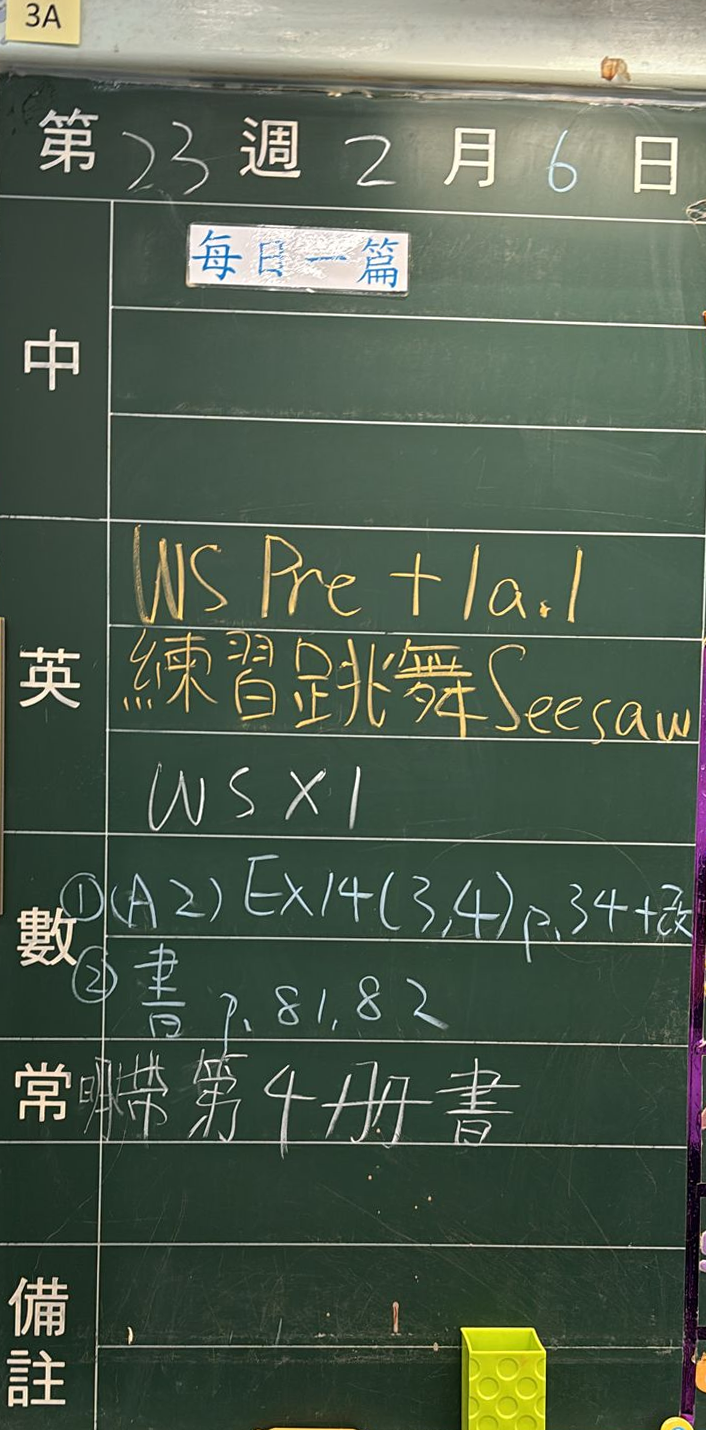 3A
第23週2月6日
中
每日一篇
英
WS Pre + 1a.1
練習跳舞Seesaw
WS X 1
數
①(A2) Ex14(3,4) p.34+改
②書 p.81,82
常
明帶第4册書
備註